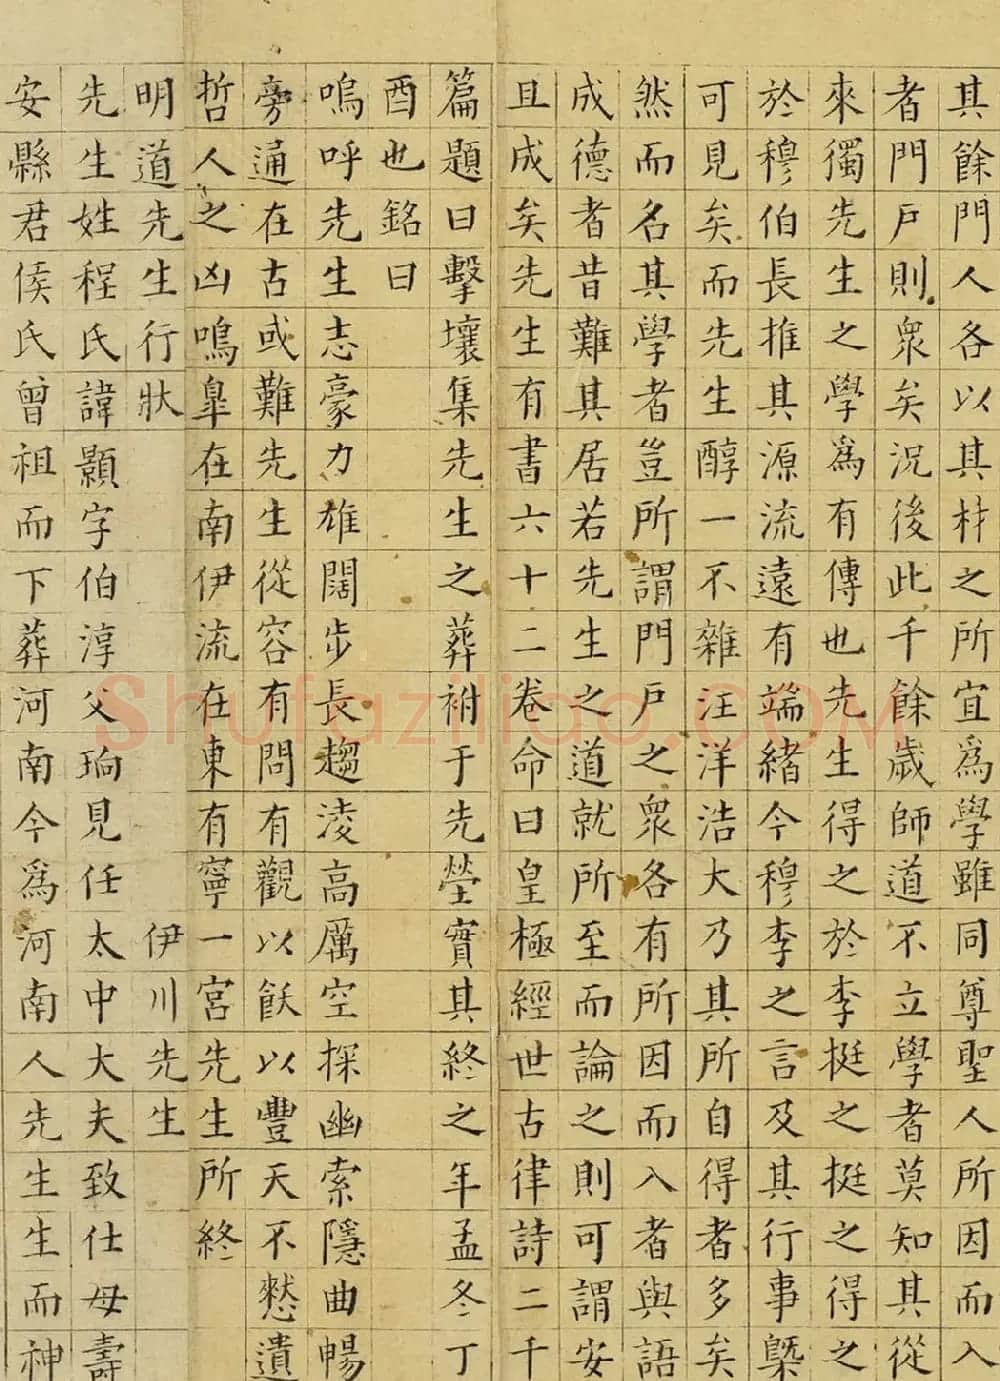 其餘門人各以其材之所宜爲學雖同尊聖人所因而入
者門戶則衆矣況後此千餘歲師道不立學者莫知其從
來獨先生之學爲有傳也先生得之於李挺之挺之得之
於穆伯長推其源流遠有端緒今穆李之言及其行事槩
可見矣而先生醇一不雜汪洋浩大乃其所自得者多矣
然而名其學者豈所謂門戶之衆各有所因而入者與語
成德者昔難其居若先生之道就所至而論之則可謂安
且成矣先生有書六十二卷命曰皇極經世古律詩二千
篇題曰擊壤集先生之葬祔于先塋實其終之年孟冬丁
酉也銘曰
嗚呼先生志豪力雄闊步長趨淩高厲空探幽索隱曲暢
旁通在古或難先生從容有問有觀以飫以豐天不憖遺
哲人之凶鳴臯在南伊流在東有寧一宮先生所終
明道先生行狀 伊川先生
先生姓程氏諱顥字伯淳父珦見任太中大夫致仕母壽
安縣君侯氏曾祖而下葬河南今爲河南人先生生而神
shufaziliao.com